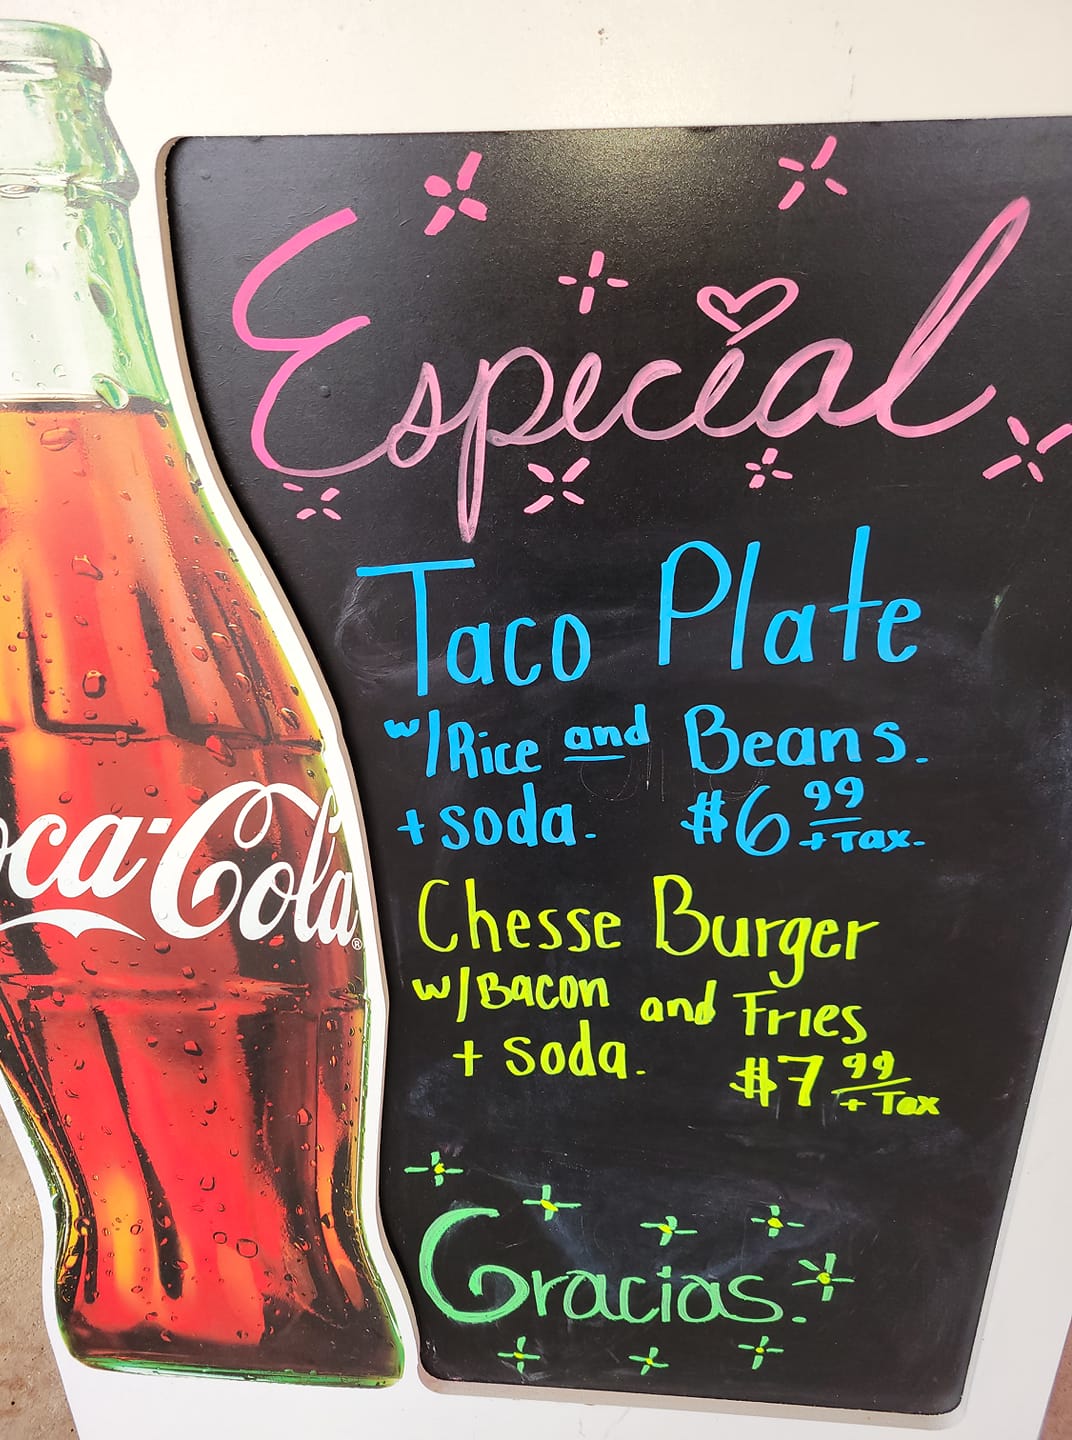 Especial
Taco Plate
w/Rice and Beans.
+ soda. $6 99 + Tax.
Chesse Burger
w/Bacon and Fries
+ soda. $7 99 + Tax
Gracias.
oca-Cola®